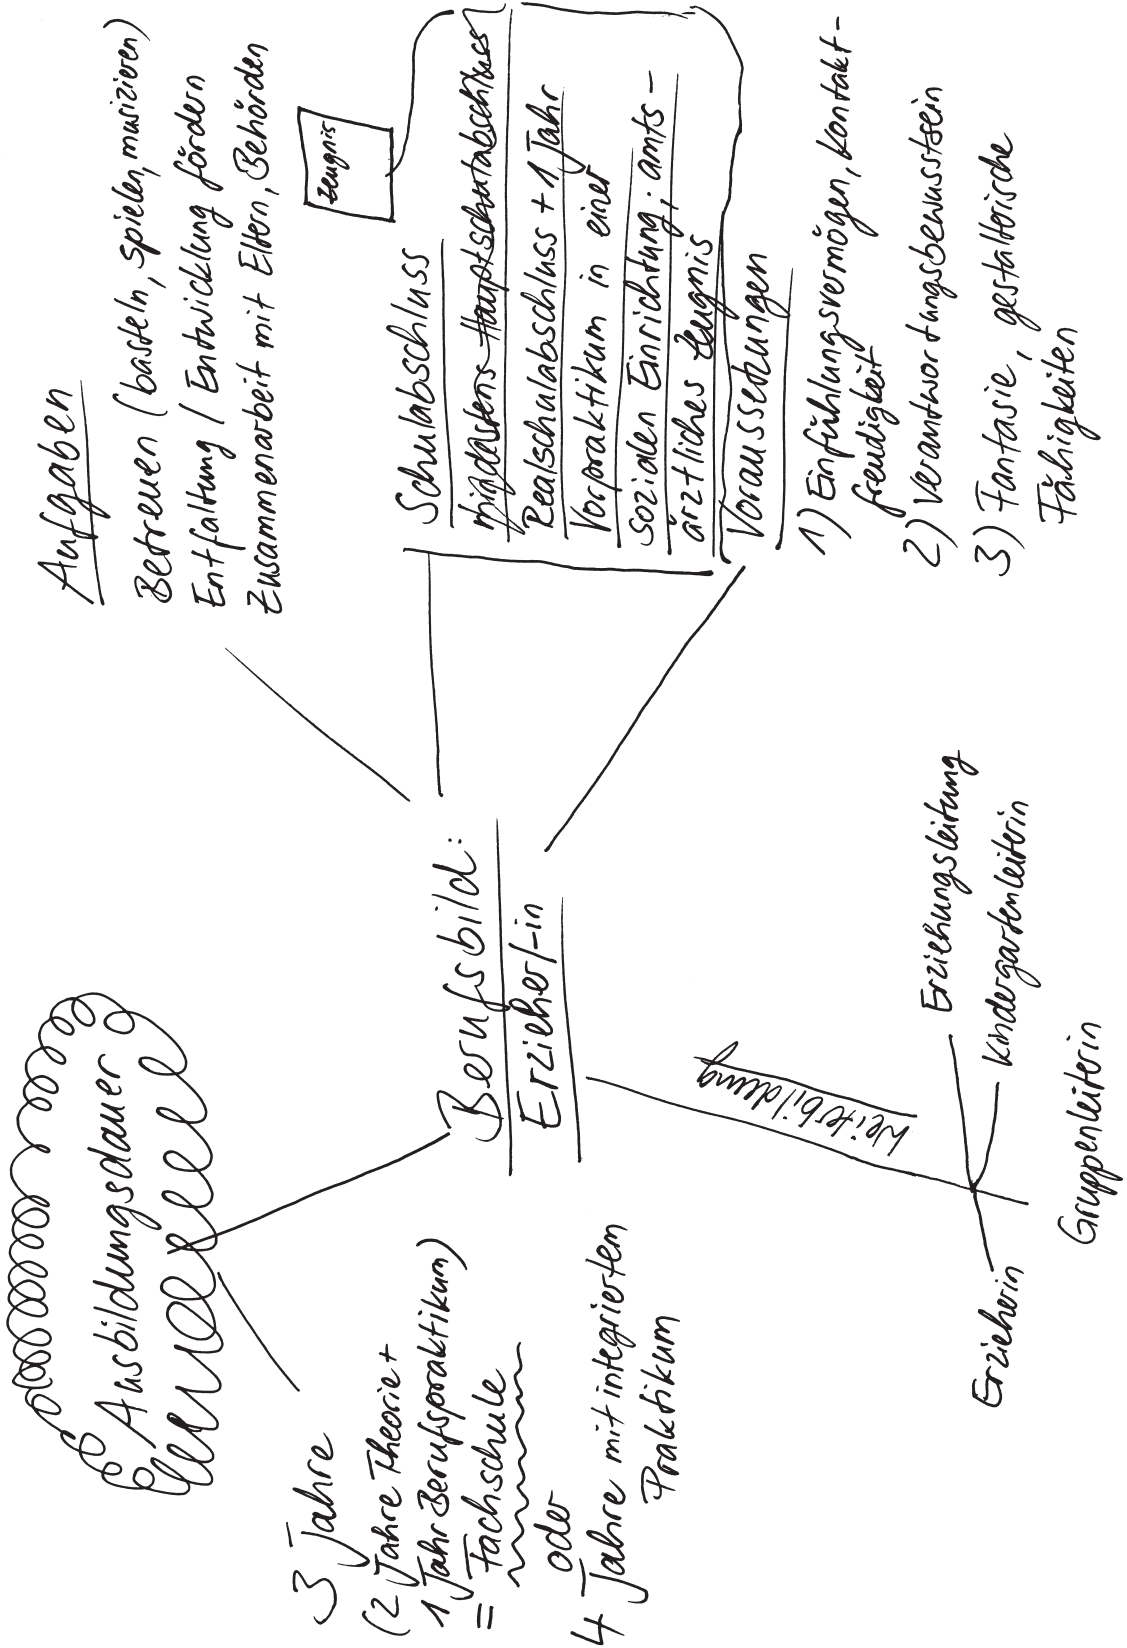 Ausbildungsdauer
3 Jahre
(2 Jahre Theorie +
1 Jahr Berufspraktikum)
= Fachschule
oder
4 Jahre mit integriertem
Praktikum
Berufsbild:
Erzieher/-in
Aufgaben
Betreuen (basteln, spielen, musizieren)
Entfaltung / Entwicklung fördern
Zusammenarbeit mit Eltern, Behörden
Zeugnis
Schulabschluss
mindestens Hauptschulabschluss
Realschulabschluss + 1 Jahr
Vorpraktikum in einer
sozialen Einrichtung; amts-
ärztliches Zeugnis
Voraussetzungen
1) Einfühlungsvermögen, Kontakt-
freudigkeit
2) Verantwortungsbewusstsein
3) Fantasie, gestalterische
Fähigkeiten
Weiterbildung
Erziehungsleitung
Kindergartenleiterin
Erzieherin
Gruppenleiterin